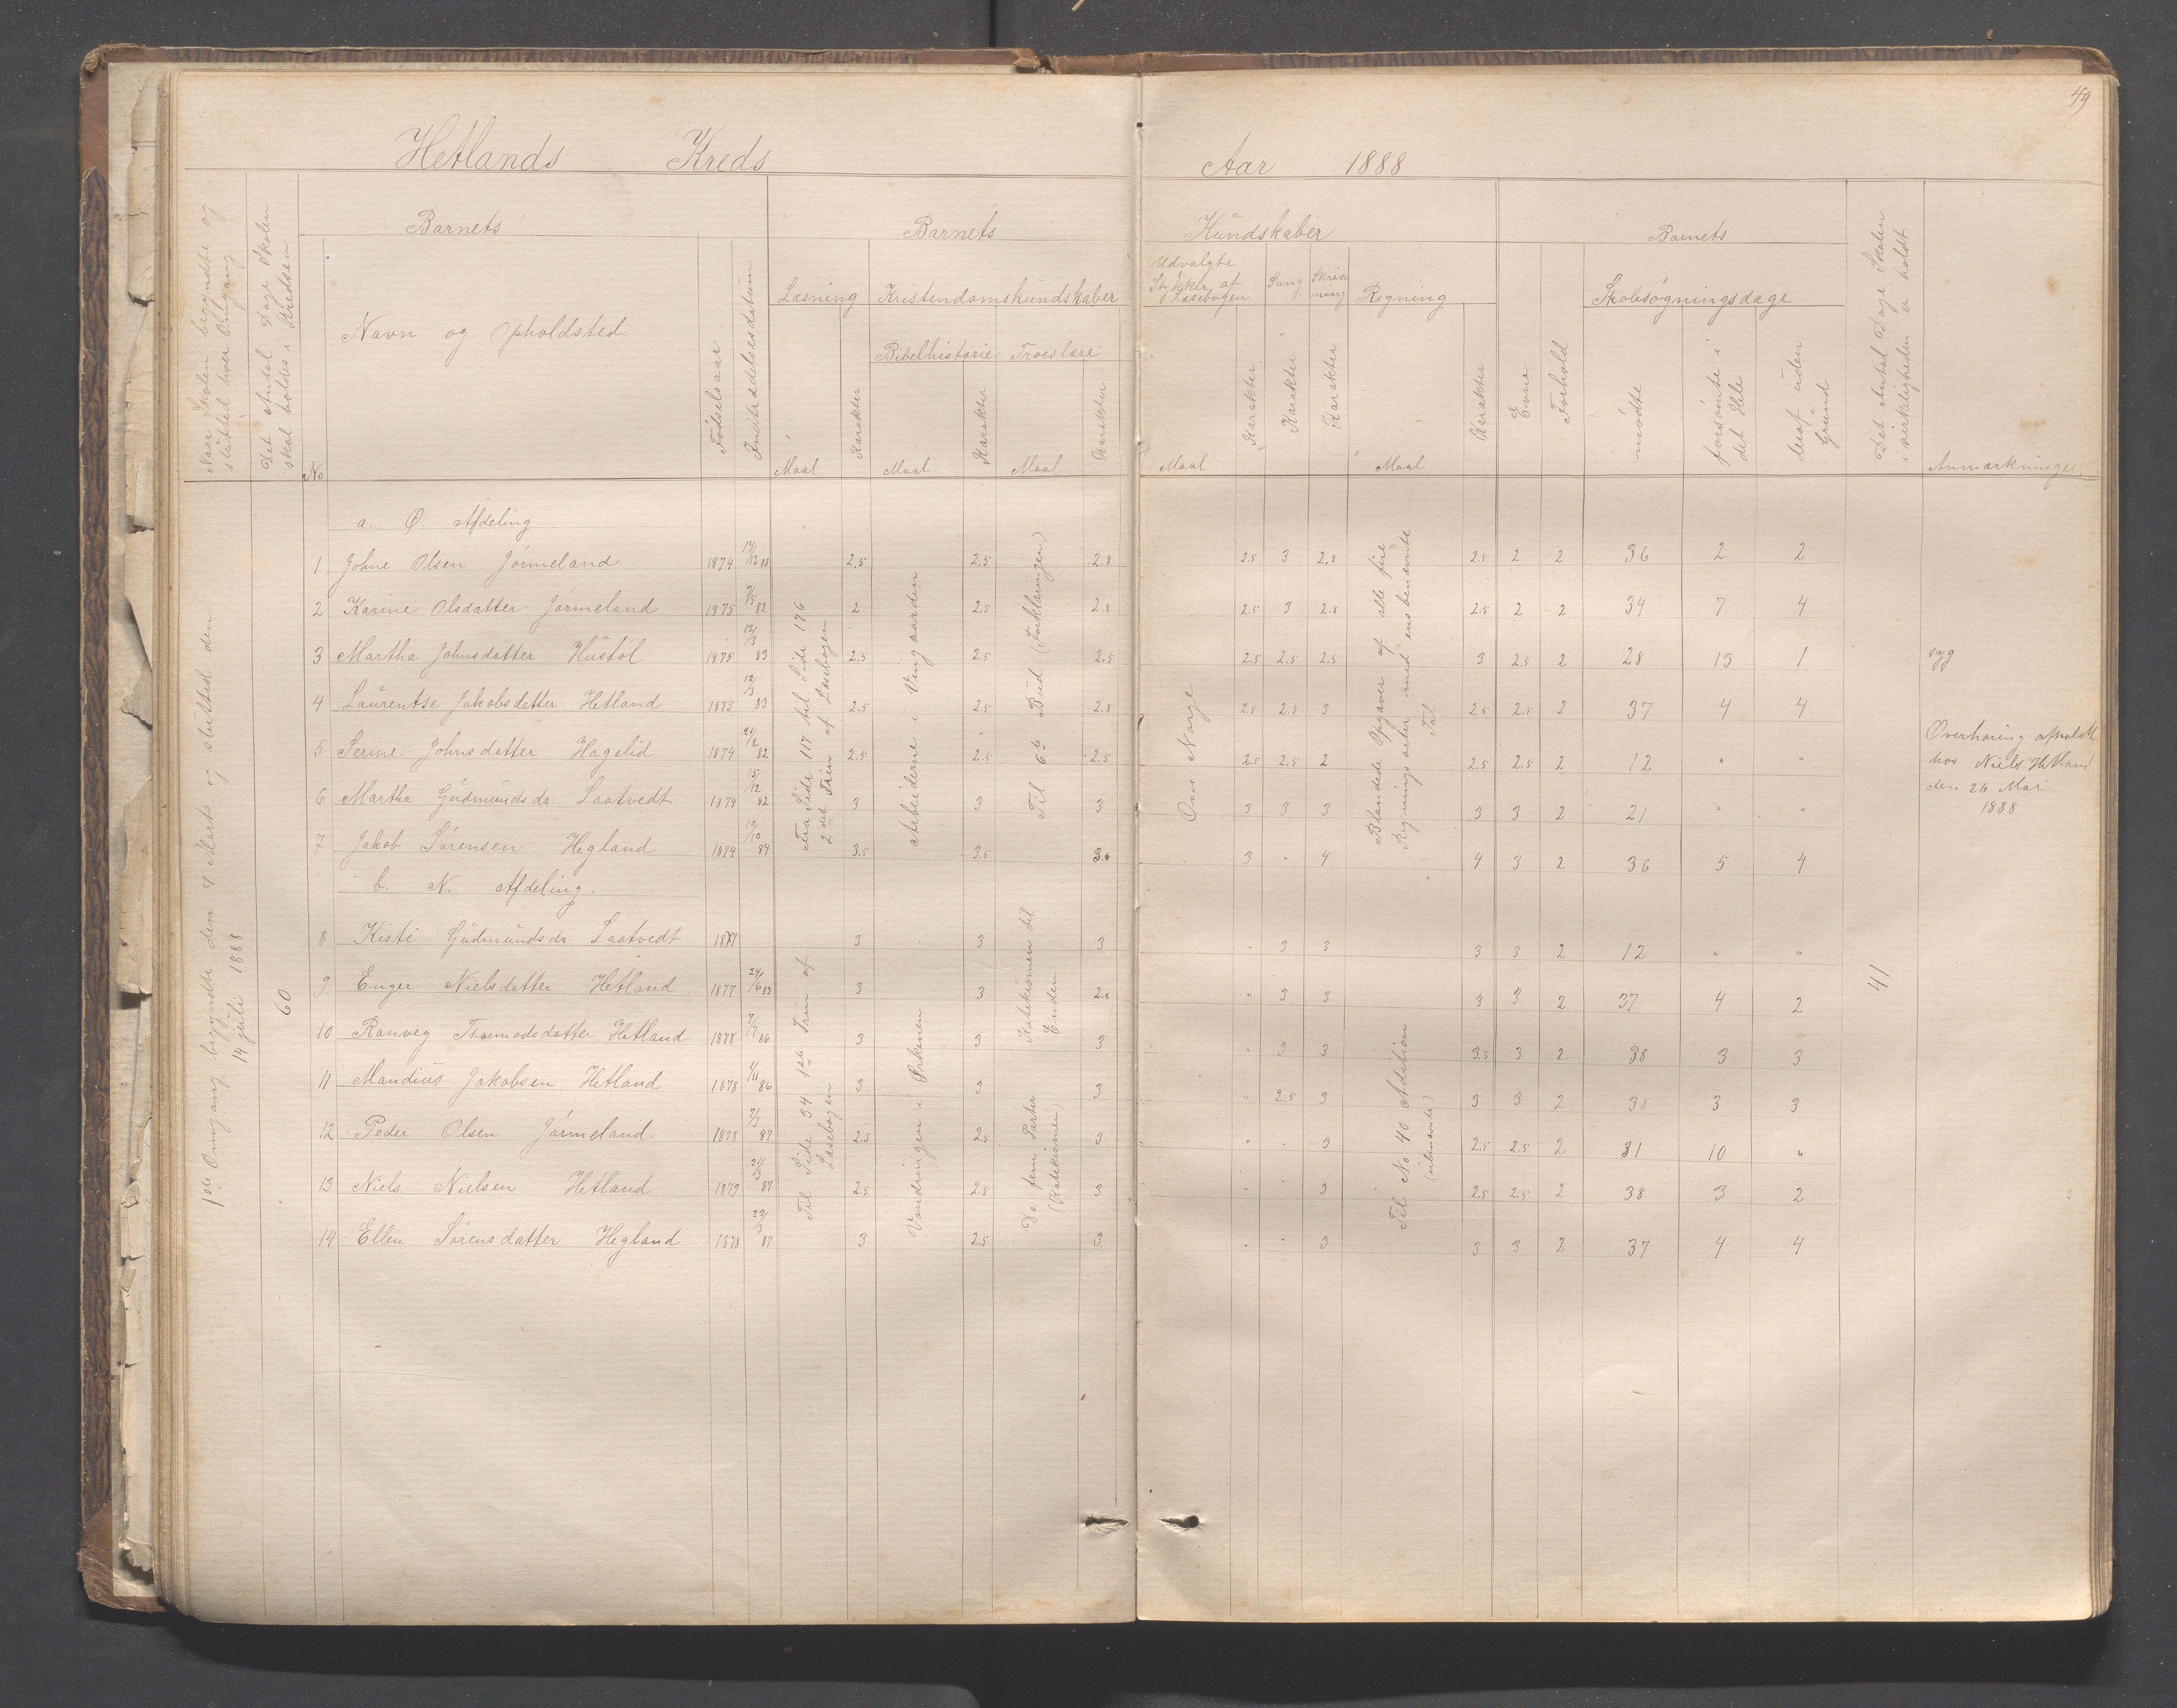 49
Hetlands Kreds Aar 1888
Naar Skolen begyndte og sluttede hver Omgang
Det Antal Dage Skolen skal holdes i Kredsen
Barnets
No
Navn og Opholdsted
Fødselsaar
Indtrædelsesdatum
Barnets Kundskaber
Læsning
Maal
Karakter
Kristendomskundskaber
Bibelhistorie
Maal
Karakter
Troeslære
Maal
Karakter
Udvalgte Stykker af Læsebogen
Maal
Karakter
Sang
Karakter
Skrivning
Karakter
Regning
Maal
Karakter
Barnets
Evne
Forhold
Skolesøgningsdage
mødte
forsømte i det Hele
deraf uden Grund
Det Antal Dage Skolen i virkeligheden er holdt
Anmærkninger
1ste Omgang begyndte den 7 Marts og slutted den 14 juli 1888
60
a. Ø. Afdeling
1 Johne Olsen Jørmeland 1874 14/12 83 2.5 2.5 2.8 2.5 3 2.5 2.5 2 2 36 2 2
2 Karine Olsdatter Jørmeland 1875 7/5 82 2 2.5 2.8 2.5 3 2.8 2.5 2 2 34 7 4
3 Martha Johnsdatter Hustøl 1875 12/3 83 2.5 2.5 2.5 2.5 2.5 2.5 3 2.5 2 28 13 1 syg
4 Laurentse Jakobsdatter Hetland 1875 12/3 83 2.5 2.5 2.8 2.5 2.5 3 2.5 2.5 2 37 4 4
5 Serine Johnsdatter Hagelid 1874 24/2 82 2.5 2.5 2.5 2.5 2.5 2 2.5 2.5 2 12 " "
6 Martha Gudmundsdr. Laatvedt 1874 15/12 82 3 3 3 3 3 3 3 3 2 21 " "
7 Jakob Sørensen Hegland 1874 84 3.5 3.5 3 " 4 4 3 2 36 5 4
Fra Side 117 til Side 176 2det Trin af Læsebogen
Arbeiderne i Vingaarden
Til 6te Bud (Forklaringen)
Om Norge
Blandede Opgaver af alle fire Regningsarter med ensbenævnte Tal
Overhøring afholdt
hos Niels Hetland
den 26 Mai
1888
b. N. Afdeling.
8 Kisti Gudmundsdr. Laatvedt 1877 3 3 3 " 3 3 3 3 2 12 " "
9 Enger Nielsdatter Hetland 1877 24/6 83 3 3 " 3 3 3 3 2 37 4 2
10 Ranveg Thormodsdatter Hetland 1878 7/7 86 3 3 3 " 3 3 3.5 3 2 38 3 3
11 Mandius Jakobsen Hetland 1878 1/11 86 3 3 3 " 2.5 3 3 3 2 38 3 3
12 Peder Olsen Jørmeland 1878 7/3 87 2.5 2.5 3 " " 3 2.5 2.5 2 31 10 "
13 Niels Nielsen Hetland 1879 21/3 87 2.5 2.5 3 " " 3 2.5 2.5 2 38 3 2
14 Ellen Sørensdatter Hegland 1878 22/3 87 3 2.5 3 " " 3 3 3 2 37 4 4
Til Side 34 1ste Trin af Læsebogen
Vandringen i Ørkenen
De fem Parter (Katekismen)
Katekismen til Enden
Til No 40 Adition (ubenævnte)
41